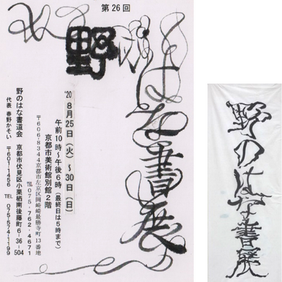 第26回
野のはな書展
'20 8月25日(火)~30日(日)
午前10時~午後6時(最終日は5時まで)
京都市美術館別館2階
〒606-8344 京都市左京区岡崎最勝寺町13番地
TEL 075-762-4671
野のはな書道会
京都市伏見区小栗栖南後藤町6-36-504
代表 春野かそい
〒601-1456
TEL 075-574-1199
野のはな書展